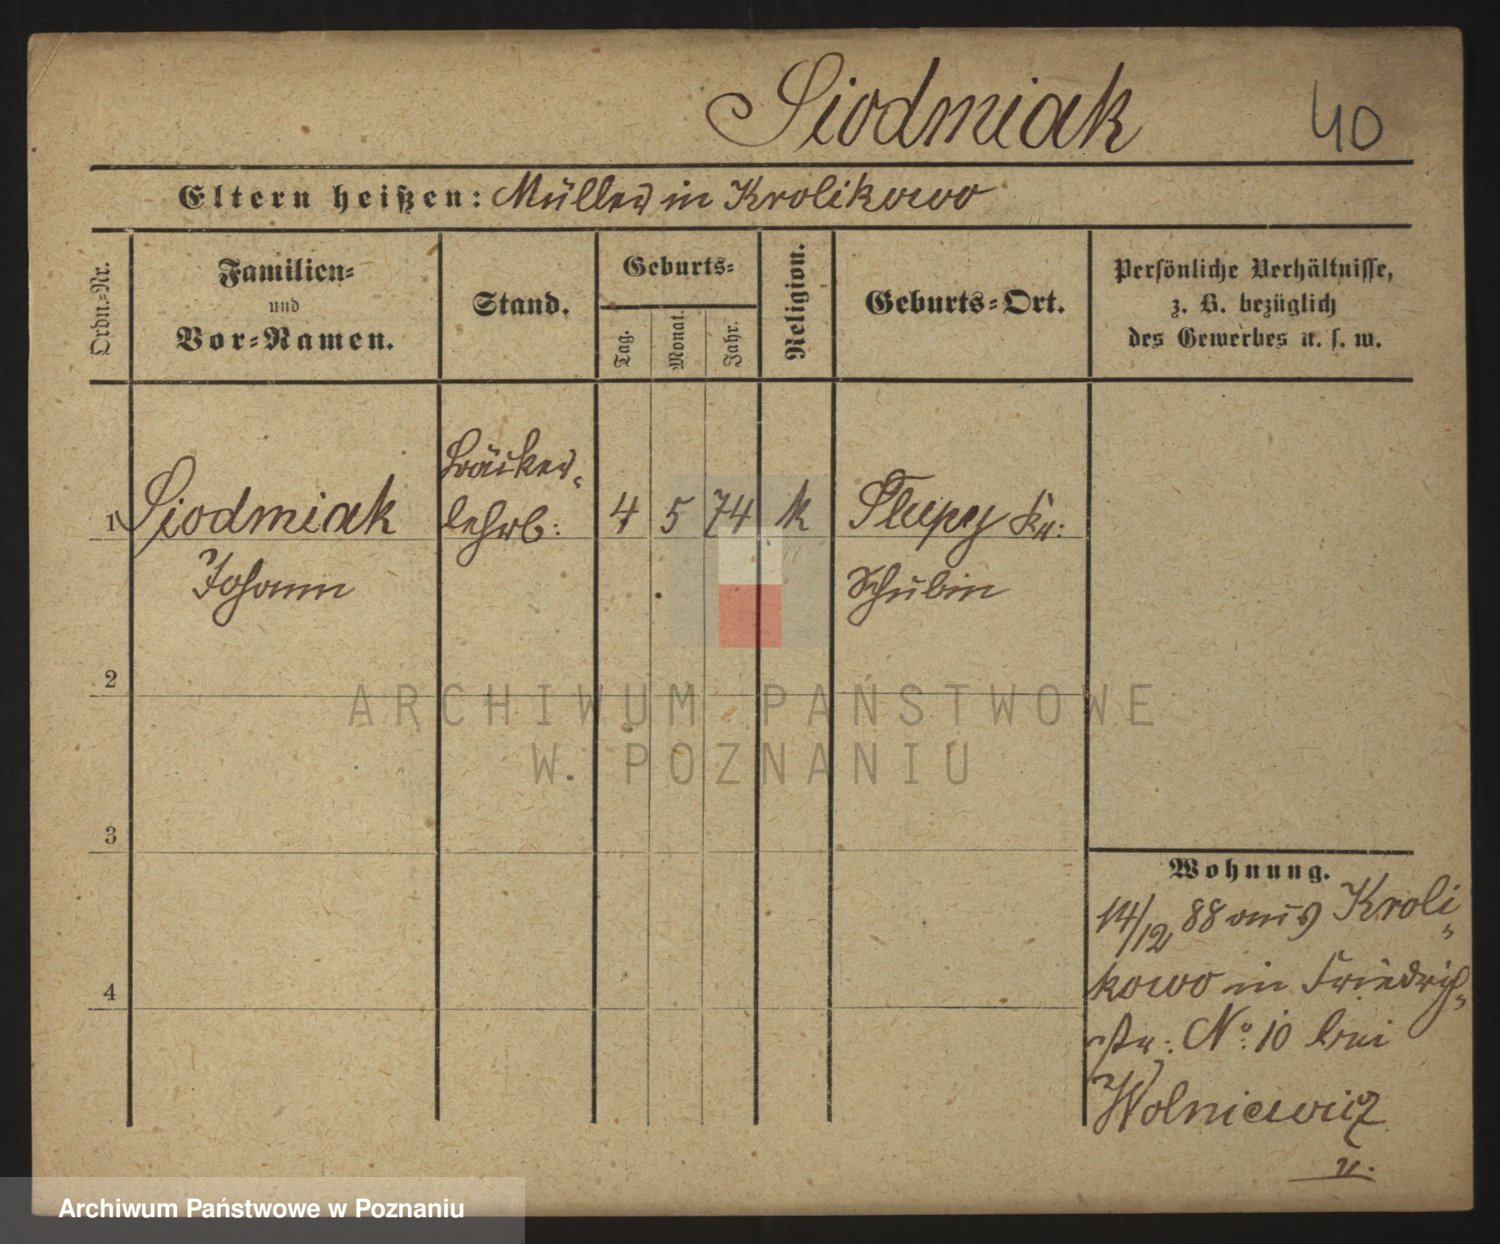 Siodmiak
40
Eltern heißen: Müller in Krolikowo
Ordn.-Nr.
Familien-
und
Vor-Namen.
Stand.
Geburts-
Tag.
Monat.
Jahr.
Religion.
Geburts-Ort.
Persönliche Verhältnisse,
z. B. bezüglich
des Gewerbes u. s. w.
1 Siodmiak
Johann
Bäcker-
lehrb:
4 5 74 k
Slupy Kr:
Schubin
2
3
4
Wohnung.
14/12 88 aus Kroli-
kowo in Friedrich-
str: No. 10 bei
Wolniewicz
ARCHIWUM PAŃSTWOWE
W POZNANIU
Archiwum Państwowe w Poznaniu